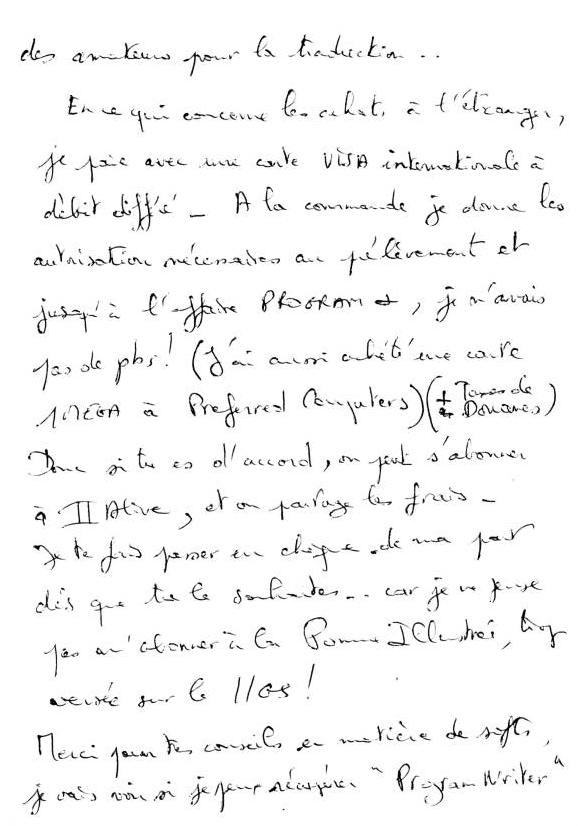 des amateurs pour la traduction ..
En ce qui concerne les achats à l'étranger,
je paie avec une carte VISA internationale à
débit différé - A la commande je donne les
autorisation nécessaires au prélèvement et
jusqu'à l'affaire PROGRAM +, je n'avais
pas de pbs! (J'ai aussi acheté une carte
1 MEGA à Preferred Computers) (+ Taxes de
Douanes)
Donc si tu es d'accord, on peut s'abonner
à II Alive, et on partage les frais -
Je te fais passer un chèque de ma part
dès que tu le souhaites... car je ne pense
pas m'abonner à la Pomme Illustrée, trop
versée sur le IIGS!
Merci pour tes conseils en matière de softs,
je vais voir si je peux récupérer "Program Writer"